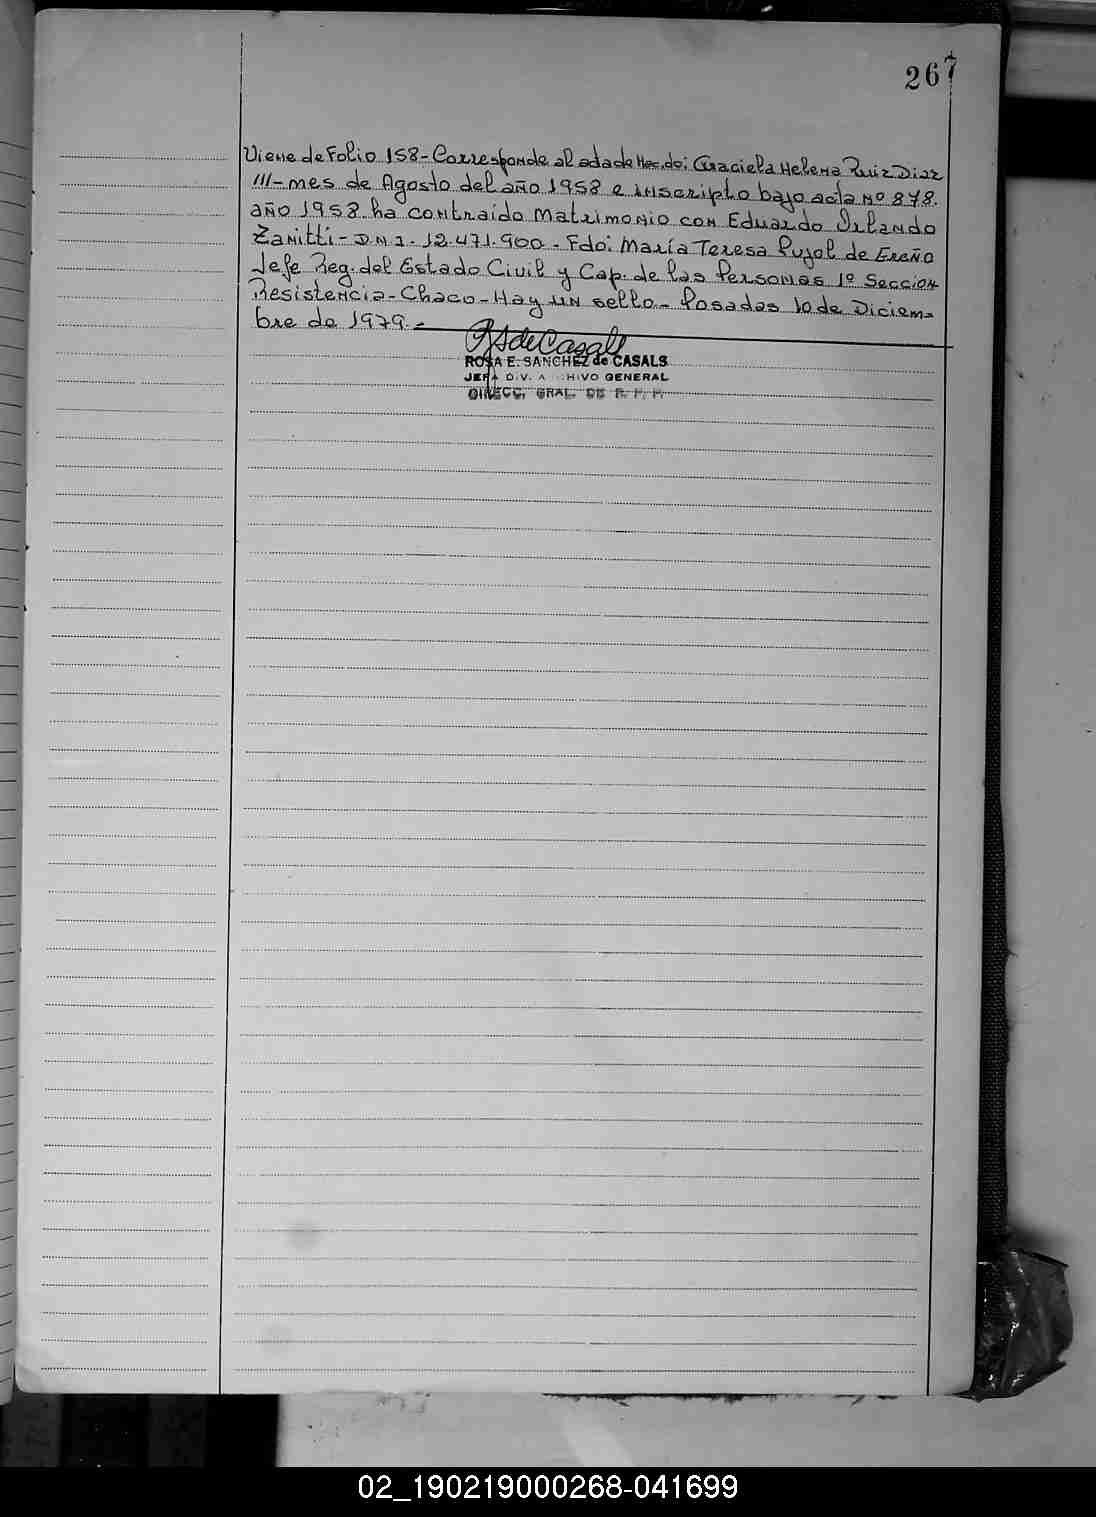 267
Viene de Folio 158-Corresponde al acta de Nac. de: Graciela Helena Ruiz Diaz
III-mes de Agosto del año 1958 e inscripto bajo acta Nº 878.
año 1958. ha contraido Matrimonio con Eduardo Orlando
Zanitti-DNI.12.471.900.-Fdo: María Teresa Pujol de Ereño
Jefe Reg. del Estado Civil y Cap. de las Personas 1º Sección
Resistencia-Chaco-Hay un sello-Posadas 10 de Diciem-
bre de 1979.-
RSdeCasals
ROSA E. SANCHEZ de CASALS
JEFA DIV. ARCHIVO GENERAL
DIRECC. GRAL. DE R. P. P.
02_190219000268-041699